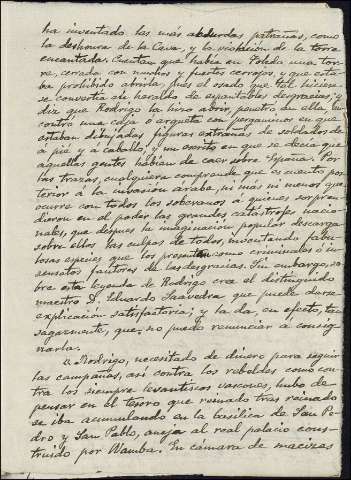 ha inventado las más absurdas patrañas, como
la deshonra de la Cava, y la violación de la torre
encantada. Cuentan que había en Toledo una tor-
re, cerrada con muchos y fuertes cerrojos, y que esta-
ba prohibido abrirla, pues el osado que tal hiciera
se convertía en heraldo de espantables desgracias; y
diz que Rodrigo la hizo abrir, penetró en ella, en-
contró una caja o arqueta con pergaminos en que
estaban dibujadas figuras extrañas de soldados de
á pié y á caballo, y un escrito en que se decía que
aquellas gentes habían de caer sobre España. Por
las trazas, cualquiera comprende que es cuento pos-
terior á la invasión árabe, ni más ni menos que
ocurre con todos los soberanos á quienes sorpren-
dieron en el poder las grandes catástrofes nacio-
nales, que después la imaginación popular descarga
sobre ellos las culpas de todos, inventando fabu-
losas especies que los presenten como criminales ó in-
sensatos fautores de las desgracias. Sin embargo, so-
bre esta leyenda de Rodrigo cree el distinguido
maestro D. Eduardo Saavedra que puede darse
explicación satisfactoria; y la da, en efecto, tan
sagazmente, que no puedo renunciar á consig-
narla.
Rodrigo, necesitado de dinero para seguir
las campañas, así contra los rebeldes como con-
tra los siempre levantiscos vascones, hubo de
pensar en el tesoro que reinado tras reinado
se iba acumulando en la basílica de San Pe-
dro y San Pablo, aneja al real palacio cons-
truido por Wamba. En cámara de macizas